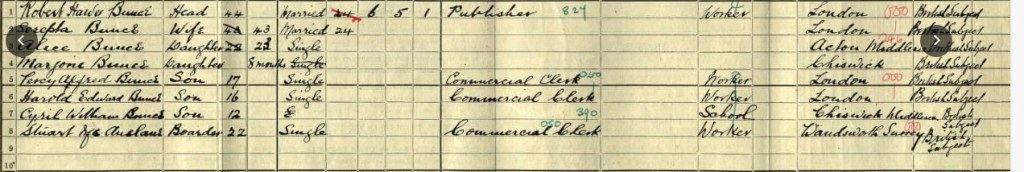 1 Robert Harvey Bunce Head 44 Married 24 6 5 1 Publisher 827 Worker London British Subject
2 Serepta Bunce Wife 43 Married 24 London British Subject
3 Alice Bunce Daughter 23 Single Acton Middlesex British Subject
4 Marjorie Bunce Daughter 8 months Single Chiswick British Subject
5 Percy Alfred Bunce Son 17 Single Commercial Clerk 050 Worker London British Subject
6 Harold Edward Bunce Son 16 Single Commercial Clerk Worker London British Subject
7 Cyril William Bunce Son 12 390 School Chiswick Middlesex British Subject
8 Stuart Boarder 22 Single Commercial Clerk 050 Worker Wandsworth Surrey British Subject
9
10